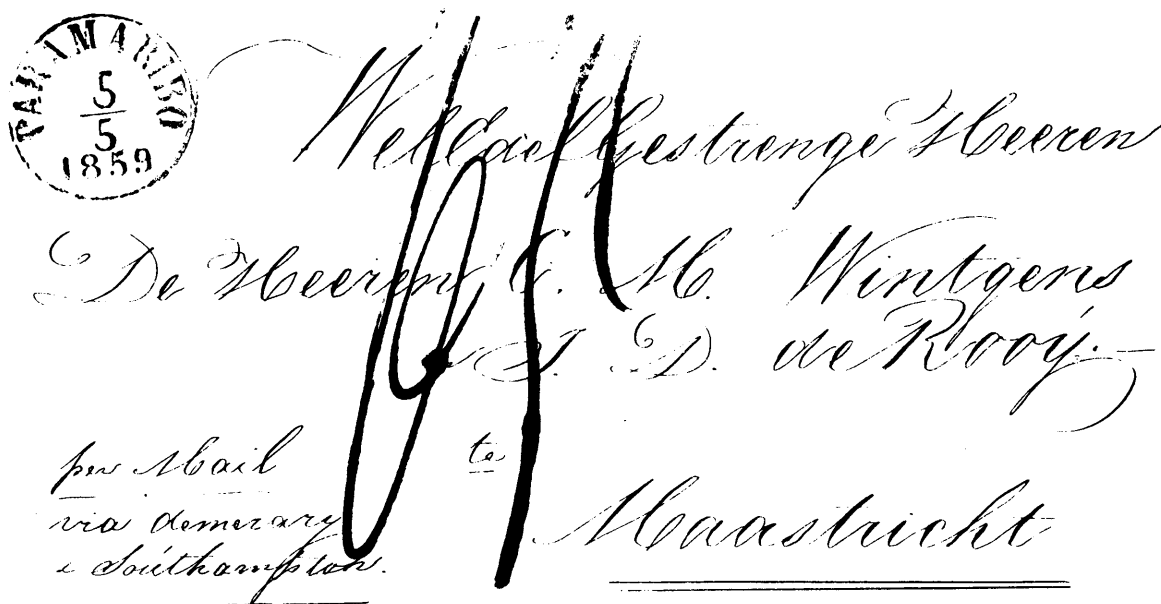 PARAMARIBO
5
5
1859
WelEdelGestrenge Heeren
De Heeren C. M. Wintgens
J. D. de Rooÿ.
per Mail
via demerary
Southampton.
te
Maastricht